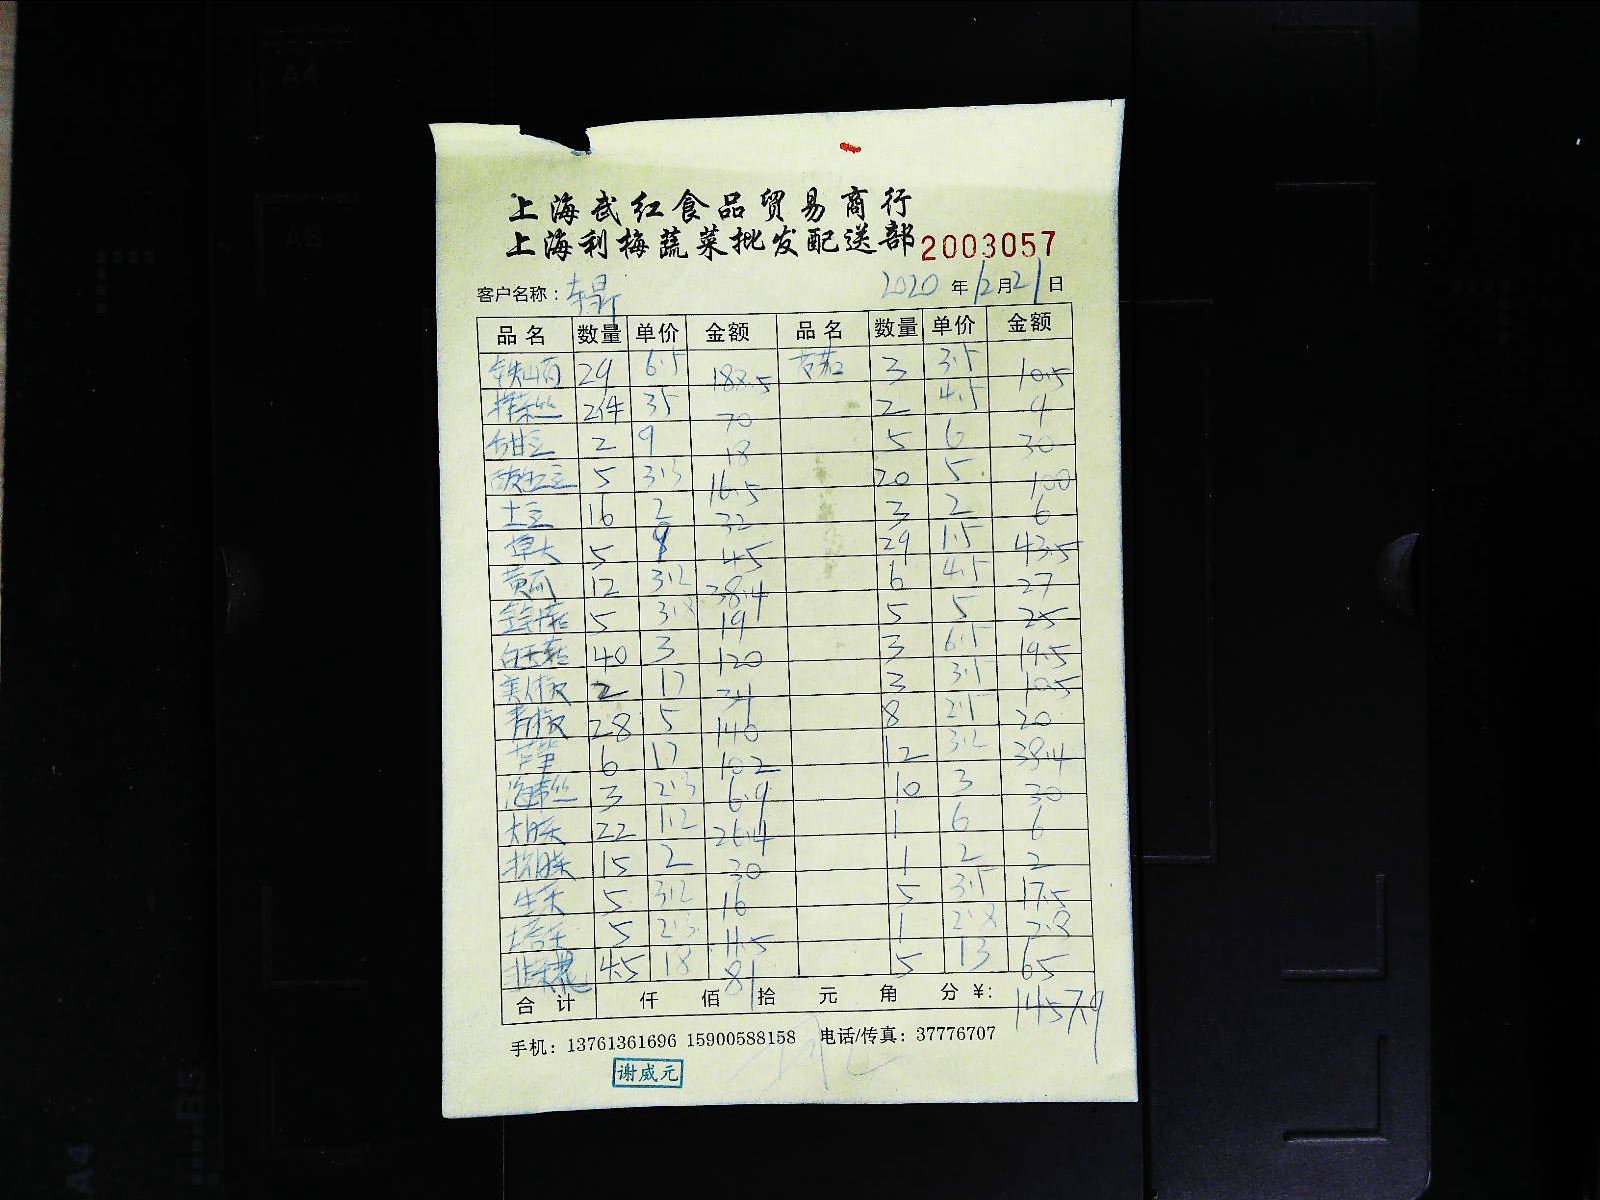 上海武红食品贸易商行
上海利梅蔬菜批发配送部 2003057
客户名称: 2020 年 12 月 21 日
品名 数量 单价 金额 品名 数量 单价 金额
铁山药 29 6.5 188.5 茄 3 3.5 10.5
榨菜丝 2件 35 70 2 4.5 9
甜豆 2 9 18 5 6 30
5 3.3 16.5 20 5 100
土豆 16 2 32 3 2 6
5 9 45 29 1.5 43.5
黄瓜 12 3.2 38.4 6 4.5 27
5 3.8 19 5 5 25
40 3 120 3 6.5 19.5
美人椒 2 17 34 3 3.5 10.5
青椒 28 5 140 8 2.5 20
芦笋 6 17 102 12 3.2 38.4
海带丝 3 2.3 6.9 10 3 30
22 1.2 26.4 1 6 6
15 2 30 1 2 2
生菜 5 3.2 16 5 3.5 17.5
5 2.3 11.5 1 2.8 2.8
4.5 18 81 5 13 65
合计 仟 佰 拾 元 角 分 ¥: 1457.9
手机: 13761361696 15900588158 电话/传真: 37776707
谢威元